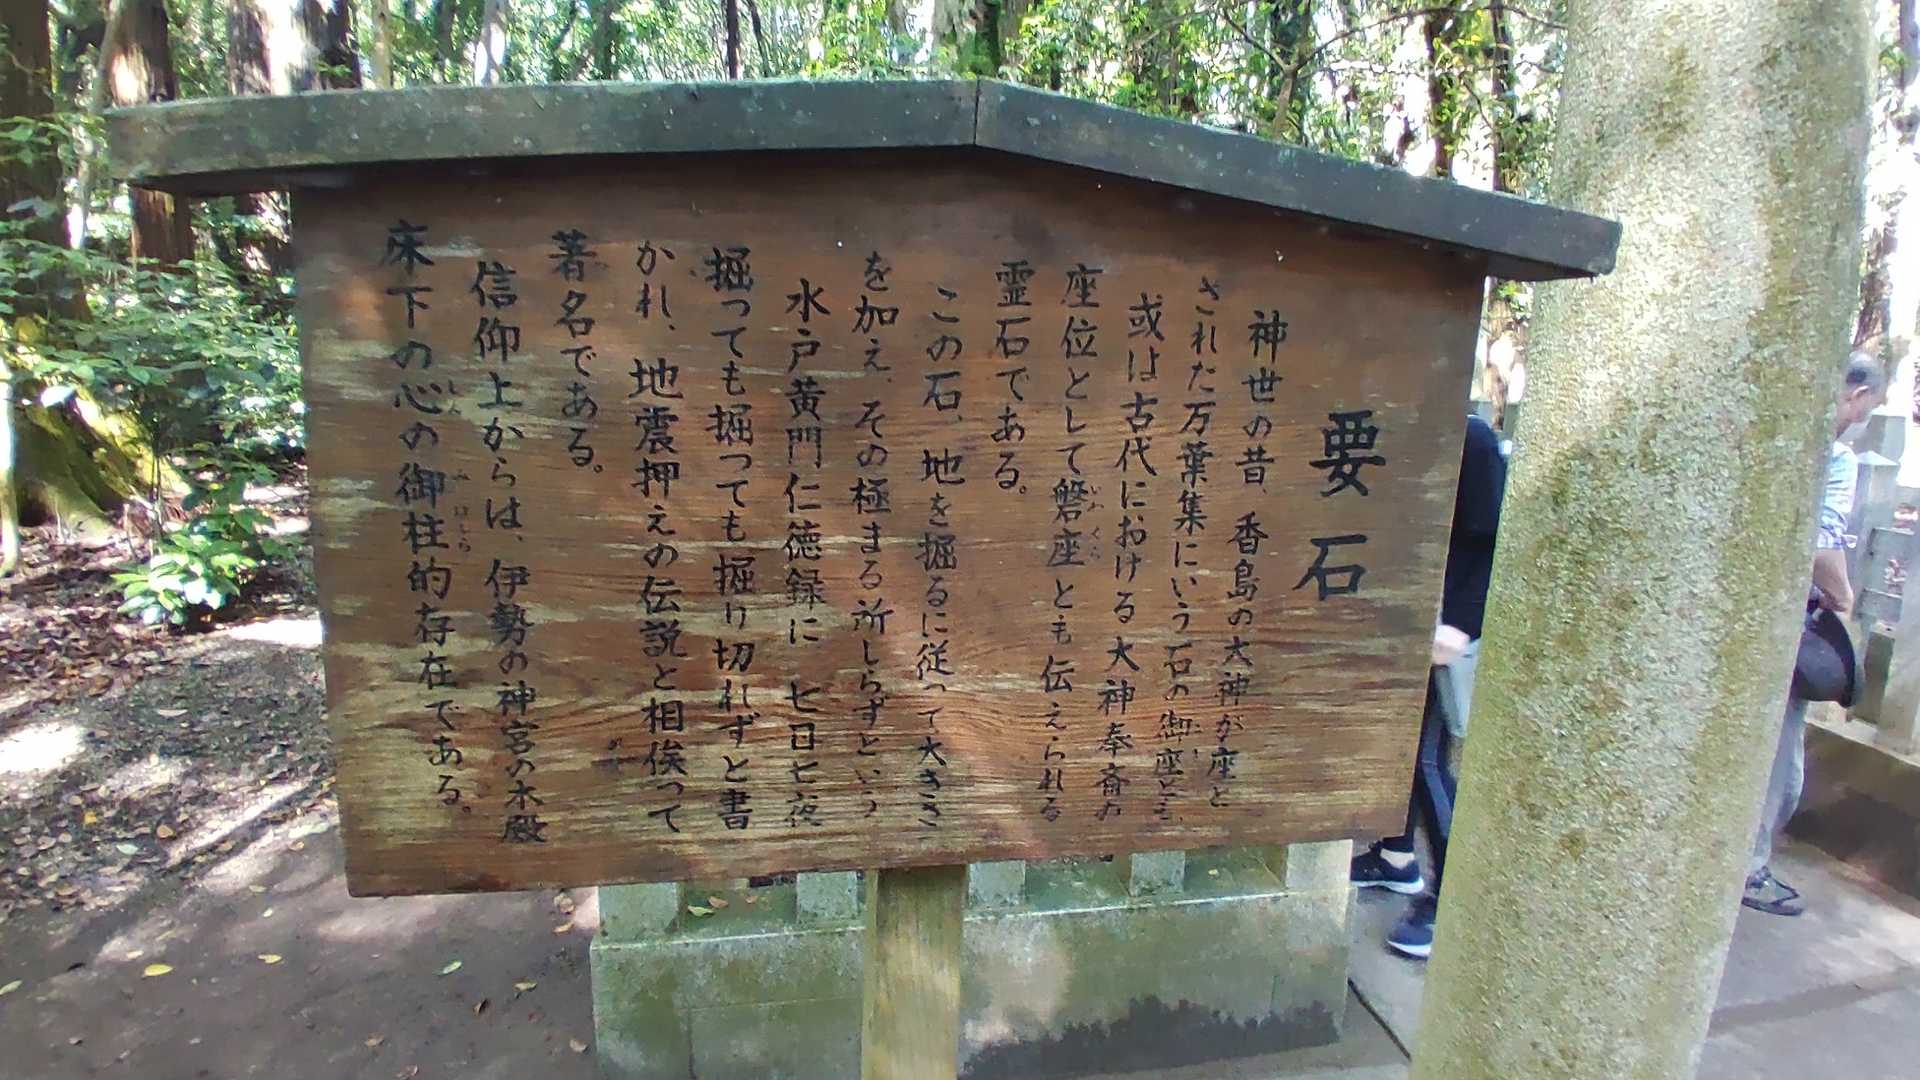 要石
神世の昔、香島の大神が座と
された万葉集にいう石の御座とも、
或は古代における大神奉斎の
座位として磐座とも伝えられる
霊石である。
この石、地を掘るに従って大きさ
を加え、その極まる所しらずという
水戸黄門仁徳録に 七日七夜
掘っても掘っても掘り切れずと書
かれ、地震押えの伝説と相俟って
著名である。
信仰上からは、伊勢の神宮の本殿
床下の心の御柱的存在である。